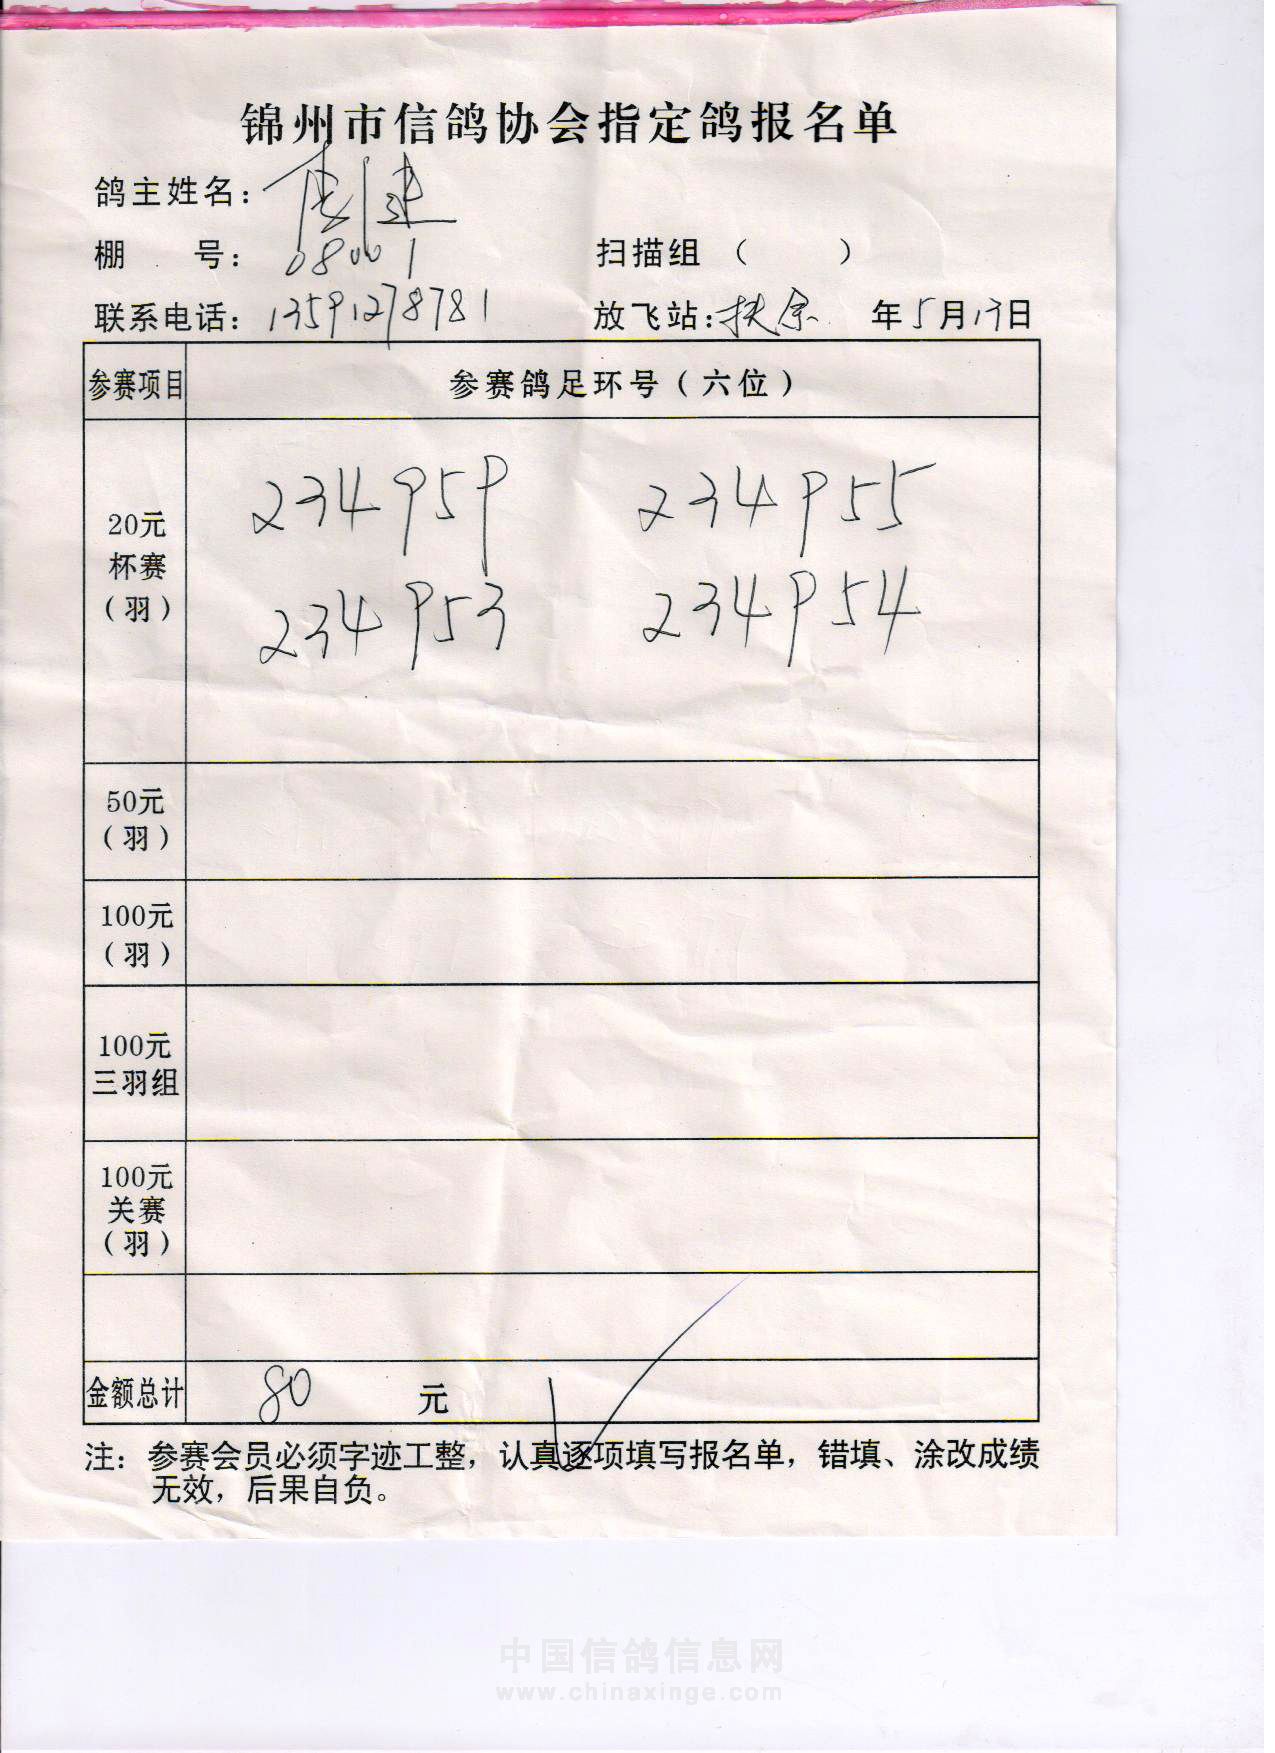 锦州市信鸽协会指定鸽报名单
鸽主姓名：
棚 号： 08001 扫描组（ ）
联系电话： 13591278781 放飞站：扶余 年5月13日
参赛项目 参赛鸽足环号（六位）
20元
杯赛
（羽）
234959 234955
234953 234954
50元
（羽）
100元
（羽）
100元
三羽组
100元
关赛
（羽）
金额总计 80 元
注：参赛会员必须字迹工整，认真逐项填写报名单，错填、涂改成绩
无效，后果自负。
中国信鸽信息网
www.chinaxinge.com